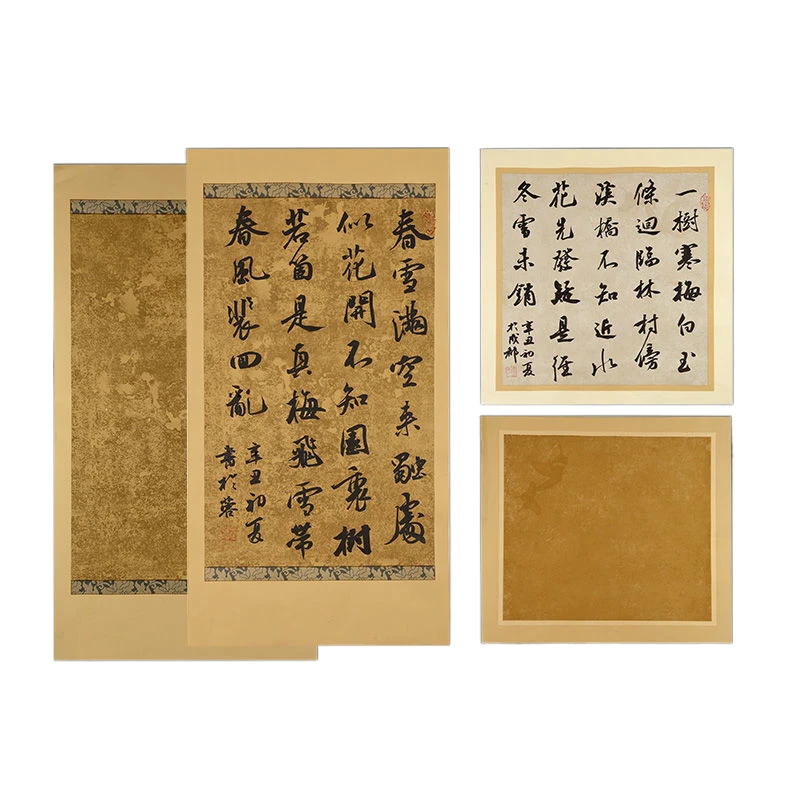 春雪滿空来觸處
似花開不知園裏樹
若箇是真梅飛雪帶
春風裴回亂
辛丑初夏
書於蓉
一樹寒梅白玉
條迴臨林村傍
溪橋不知近水
花先發疑是經
冬雪未銷
辛丑初夏
於成都